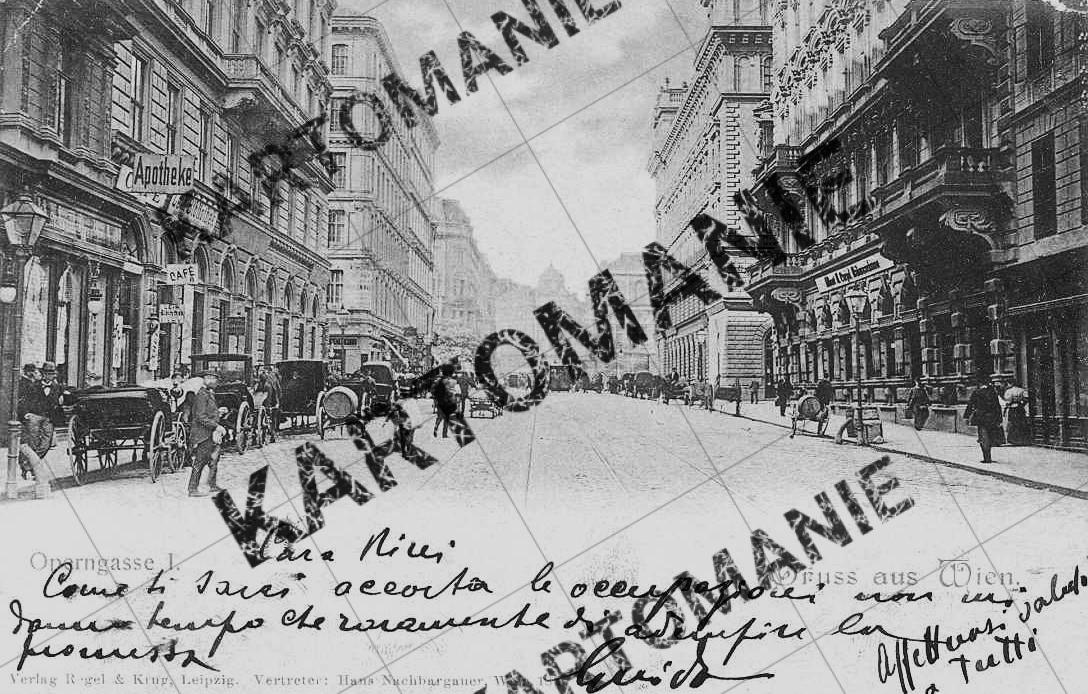 Apotheke
CAFÉ
KARTOMANIE
KARTOMANIE
KARTOMANIE
Operngasse I.
Gruss aus Wien.
Cara Ricci
Come ti sarai accorta le occupazioni non mi
danno tempo che raramente di adempire la
promessa
Guido
Affettuosi saluti
a tutti
Verlag Regel & Krug, Leipzig. Vertreter: Hans Nachbargauer, Wien